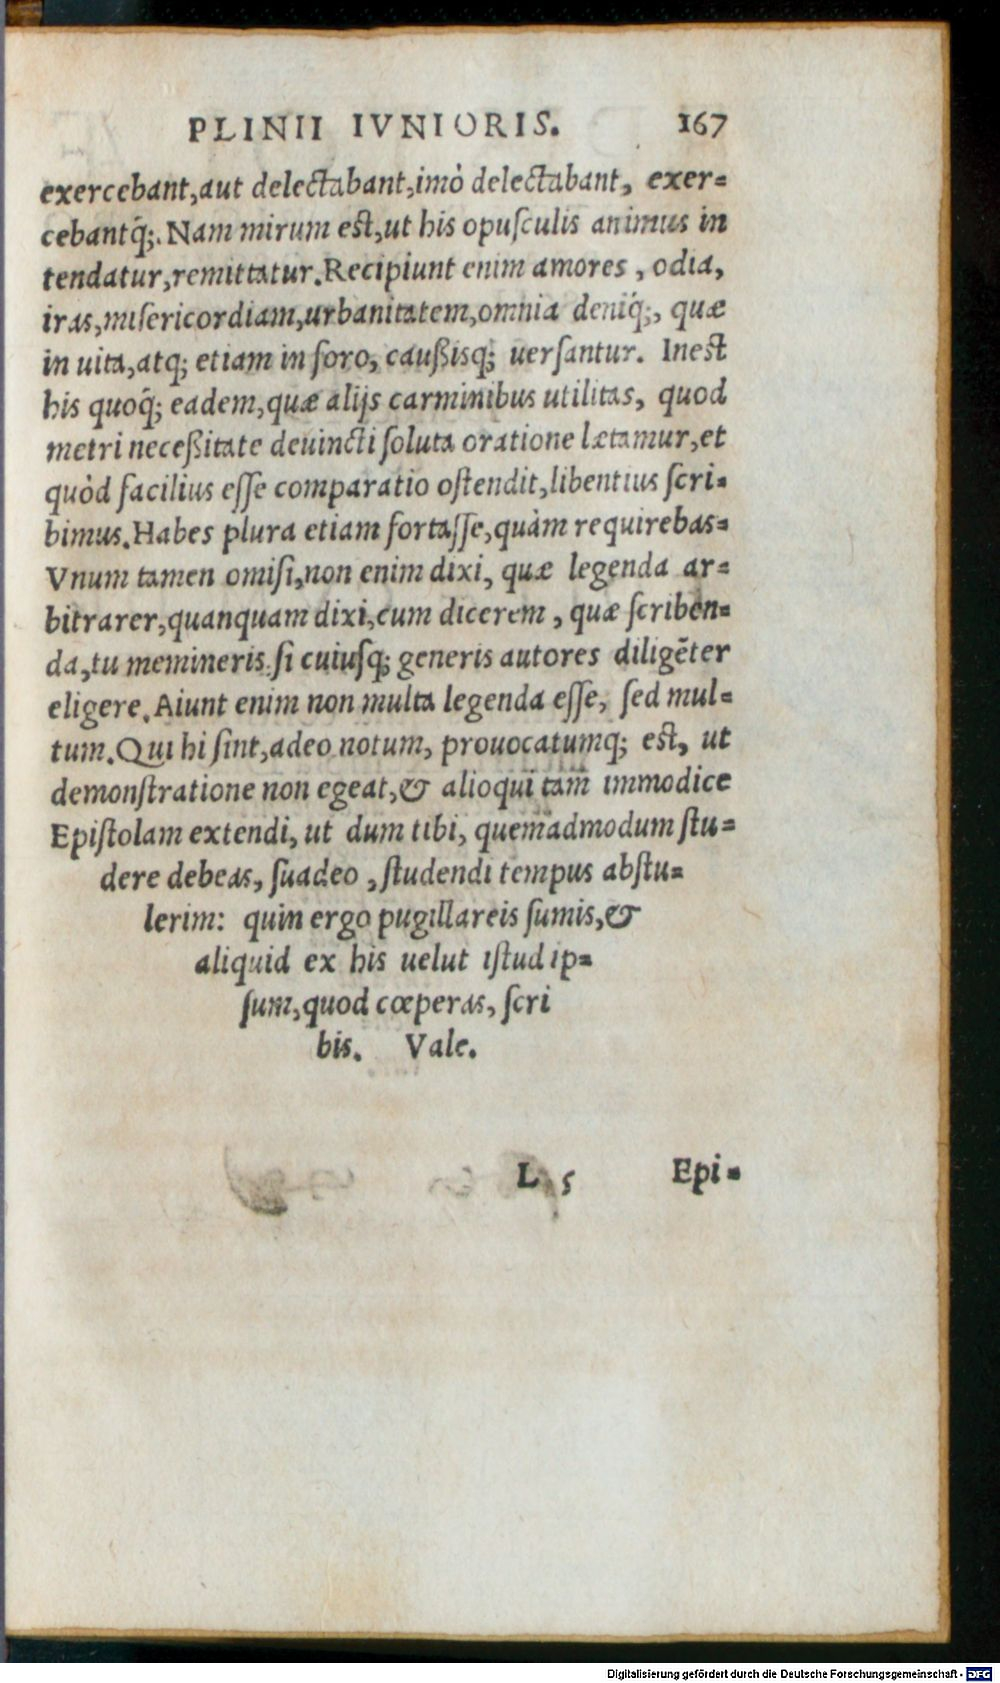 PLINII IVNIORIS. 167
exercebant,aut delectabant,imò delectabant, exer=
cebantq́;. Nam mirum est,ut his opuſculis animus in
tendatur,remittatur.Recipiunt enim amores , odia,
iras,miſericordiam,urbanitatem,omnia deniq́;, quæ
in uita,atq; etiam in foro, caußisq; uerſantur. Inest
his quoq́; eadem,quæ alijs carminibus utilitas, quod
metri neceßitate deuincti ſoluta oratione lætamur,et
quòd facilius eſſe comparatio oſtendit,libentius ſcri=
bimus.Habes plura etiam fortaſſe,quàm requirebas=
Vnum tamen omiſi,non enim dixi, quæ legenda ar=
bitrarer,quanquam dixi,cum dicerem , quæ ſcriben=
da,tu memineris.ſi cuiuſq; generis autores diligẽter
eligere.Aiunt enim non multa legenda eſſe, ſed mul=
tum.Qui hi ſint,adeo notum, prouocatumq; est, ut
demonſtratione non egeat,& alioqui tam immodice
Epiſtolam extendi, ut dum tibi, quemadmodum ſtu=
dere debeas, ſuadeo , ſtudendi tempus abſtu=
lerim: quin ergo pugillareis ſumis,&
aliquid ex his uelut iſtud ip=
ſum,quod cœperas, ſcri
bis. Vale.
L 5 Epi=
Digitalisierung gefördert durch die Deutsche Forschungsgemeinschaft - DFG